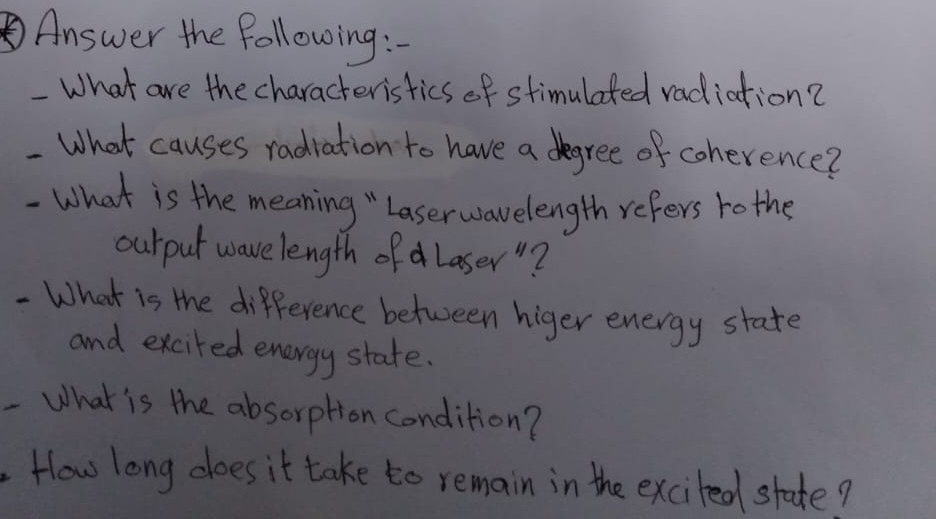 * Answer the following:-
- What are the characteristics of stimulated radiation?
- What causes radiation to have a degree of coherence?
- What is the meaning "Laser wavelength refers to the
output wave length of a Laser"?
- What is the difference between higer energy state
and excited energy state.
- What is the absorption condition?
- How long does it take to remain in the excited state?